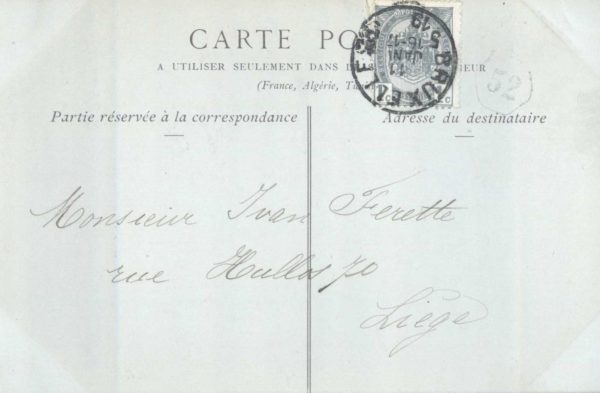 CARTE PO
A UTILISER SEULEMENT DANS
(France, Algérie, Tu
Partie réservée à la correspondance
Adresse du destinataire
BRUXELLES
11
JANV
52
Monsieur Ivan Ferette
rue Hullos 70
Liége